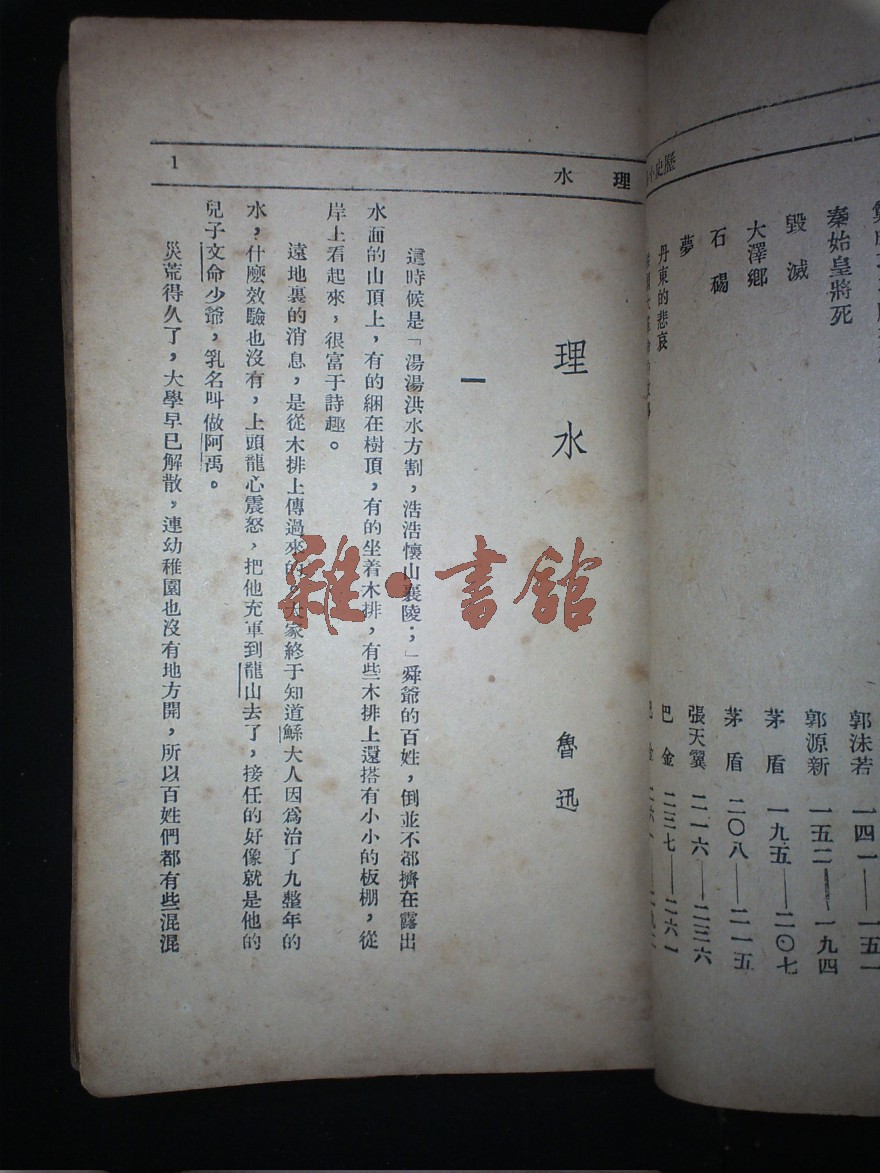 歷史小
秦始皇將死 郭沫若 一四一——一五一
毀滅 郭源新 一五二——一九四
大澤鄉 茅盾 一九五——二〇七
石碣 茅盾 二〇八——二一五
夢 張天翼 二一六——二三六
丹東的悲哀 巴金 二三七——二六一
理水
1
理水
魯迅
一
這時候是「湯湯洪水方割,浩浩懷山襄陵;」舜爺的百姓,倒並不都擠在露出
水面的山頂上,有的綑在樹頂,有的坐着木排,有些木排上還搭有小小的板棚,從
岸上看起來,很富于詩趣。
遠地裏的消息,是從木排上傳過來的。大家終于知道鯀大人因爲治了九整年的
水,什麽效驗也沒有,上頭龍心震怒,把他充軍到龍山去了,接任的好像就是他的
兒子文命少爺,乳名叫做阿禹。
災荒得久了,大學早已解散,連幼稚園也沒有地方開,所以百姓們都有些混混
雜·書館